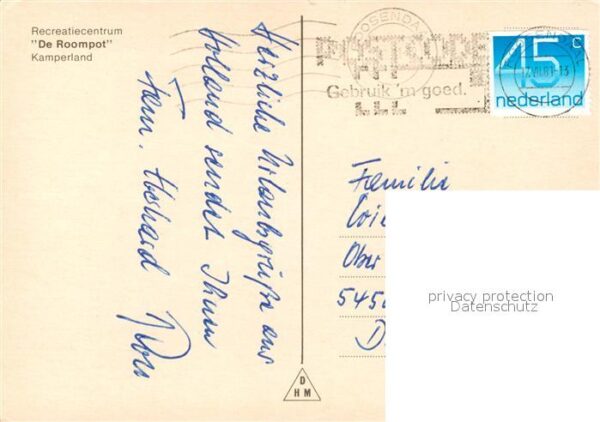 Recreatiecentrum
"De Roompot"
Kamperland
Herzliche Urlaubsgrüße aus
Holland sendet Ihnen
Fam.
POSTCODE
Gebruik 'm goed.
45 c
nederland
Familie
Ober
545
D
privacy protection
Datenschutz
D
HM